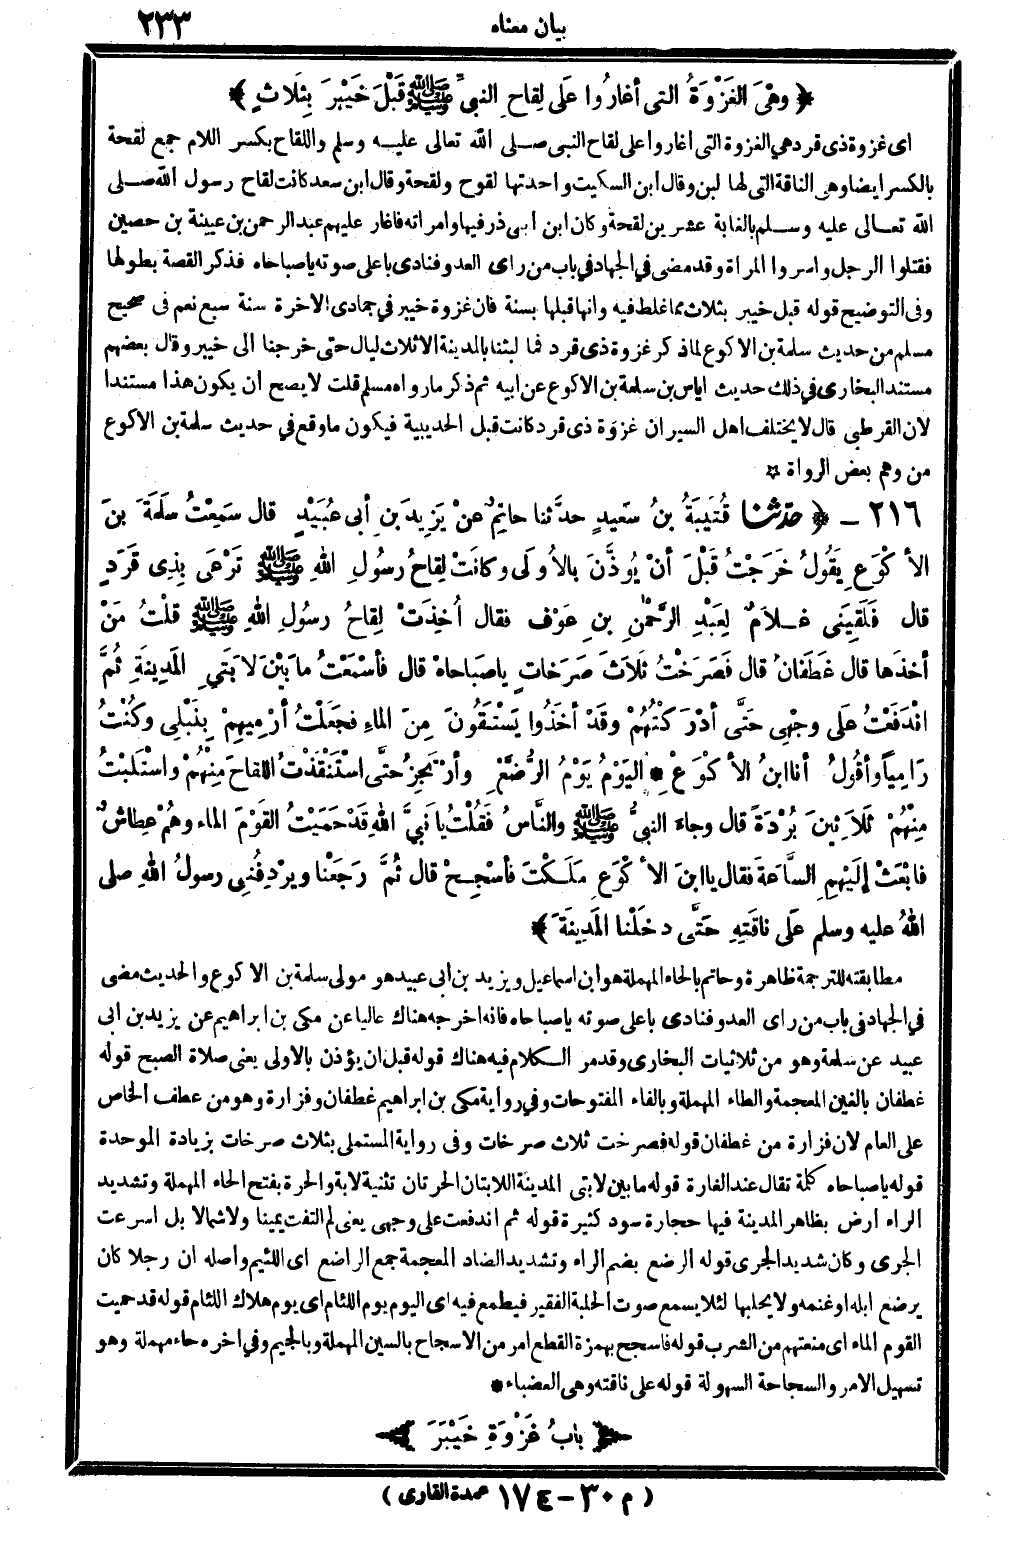 بيان معناه ٢٣٣
﴿ وهْىَ الغَزْوَةُ التى أغارُوا عَلَى لِقاحِ النبىِّ ﷺ قَبْلَ خَيْبَرَ بِثَلاثٍ ﴾
اى غزوة ذى قرد هي الغزوة التى اغاروا على لقاح النبى صلى الله تعالى عليه وسلم واللقاح بكسر اللام جمع لقحة
بالكسر ايضا وهى الناقة التى لها لبن وقال ابن السكيت واحدتها لقوح ولقحة وقال ابن سعد كانت لقاح رسول الله صلى
الله تعالى عليه وسلم بالغابة عشرين لقحة وكان ابن ابى ذر فيها وامراته فاغار عليهم عبد الرحمن بن عيينة بن حصين
فقتلوا الرجل واسروا المراة وقد مضى في الجهاد في باب من راى العدو فنادى باعلى صوته ياصباحاه فذكر القصة بطولها
وفى التوضيح قوله قبل خيبر بثلاث مما غلط فيه وانها قبلها بسنة فان غزوة خيبر في جمادى الاخرة سنة سبع نعم فى صحيح
مسلم من حديث سلمة بن الاكوع لما ذكر غزوة ذى قرد فما لبثنا بالمدينة الا ثلاث ليال حتى خرجنا الى خيبر وقال بعضهم
مستند البخارى في ذلك حديث اياس بن سلمة بن الاكوع عن ابيه ثم ذكر ما رواه مسلم قلت لا يصح ان يكون هذا مستندا
لان القرطبى قال لا يختلف اهل السير ان غزوة ذى قرد كانت قبل الحديبية فيكون ما وقع في حديث سلمة بن الاكوع
من وهم بعض الرواة ☆
٢١٦ - ﴿ حدّثنا قُتَيْبَةُ بنُ سَعِيدٍ حدَّثنا حاتِمٌ عنْ يَزِيدَ بنِ أبى عُبَيْدٍ قال سَمِعْتُ سلَمَةَ بنَ
الأكْوَعِ يَقُولُ خَرَجْتُ قَبْلَ أنْ يُوذَّنَ بالأُولَى وكانَتْ لِقاحُ رسُولِ اللهِ ﷺ تَرْعَى بِذِى قَرَدٍ
قال فَلَقِيَنى غُلامٌ لِعَبْدِ الرَّحْمٰنِ بنِ عَوْف فقال أُخِذَتْ لِقاحُ رسُولِ اللهِ ﷺ قلْتُ مَنْ
أخذَها قال غَطَفانُ قال فَصَرَخْتُ ثَلاثَ صَرَخَاتٍ ياصَباحاهْ قال فأسْمَعْتُ ما بَيْنَ لابَتَيِ المَدِينَةِ ثُمَّ
انْدَفَعْتُ عَلَى وجْهِى حَتَّى أدْرَكْتُهُمْ وقَدْ أخَذُوا يَسْتَقُونَ مِنَ الماءِ فجعَلْتُ أرْمِيهِمْ بِنَبْلِى وكُنْتُ
رَامِياً وأقُولُ أنا ابنُ الأكْوَعْ * اليَوْمُ يَوْمُ الرُّضَّعْ وأرْتَجِزُ حتَّى اسْتَنْقَذْتُ اللِّقاحَ مِنْهُمْ واسْتَلَبْتُ
مِنْهُمْ ثَلاثِينَ بُرْدَةً قال وجاءَ النبىُّ ﷺ والنَّاسُ فَقُلْتُ يا نَبِيَّ اللهِ قَدْ حَمَيْتُ القَوْمَ الماء وهُمْ عِطاشٌ
فابْعَثْ إلَيْهِمِ السَّاعَةَ فقال يا ابنَ الأكْوَعِ مَلَكْتَ فأسْجِحْ قال ثُمَّ رَجَعْنا ويردِفُنِى رسولُ اللهِ صلى
اللهُ عليه وسلم عَلَى ناقَتِهِ حَتَّى دخَلْنا المَدِينَةَ ﴾
مطابقته للترجمة ظاهرة وحاتم بالحاء المهملة هو ابن اسماعيل ويزيد بن ابى عبيد هو مولى سلمة بن الاكوع والحديث مضى
في الجهاد فى باب من راى العدو فنادى باعلى صوته ياصباحاه فانه اخرجه هناك عاليا عن مكى بن ابراهيم عن يزيد بن ابى
عبيد عن سلمة وهو من ثلاثيات البخارى وقد مر الكلام فيه هناك قوله قبل ان يؤذن بالاولى يعنى صلاة الصبح قوله
غطفان بالغين المعجمة والطاء المهملة وبالفاء المفتوحات وفي رواية مكى بن ابراهيم غطفان وفزارة وهو من عطف الخاص
على العام لان فزارة من غطفان قوله فصرخت ثلاث صرخات وفى رواية المستملى بثلاث صرخات بزيادة الموحدة
قوله ياصباحاه كلمة تقال عند الغارة قوله ما بين لابتى المدينة اللابتان الحرتان تثنية لابة والحرة بفتح الحاء المهملة وتشديد
الراء ارض بظاهر المدينة فيها حجارة سود كثيرة قوله ثم اندفعت على وجهى يعنى لم التفت يمينا ولا شمالا بل اسرعت
الجرى وكان شديد الجرى قوله الرضع بضم الراء وتشديد الضاد المعجمة جمع الراضع اى اللئيم واصله ان رجلا كان
يرضع ابله او غنمه ولا يحلبها لئلا يسمع صوت الحلبة الفقير فيطمع فيه اى اليوم يوم اللئام اى يوم هلاك اللئام قوله قد حميت
القوم الماء اى منعتهم من الشرب قوله فاسجح بهمزة القطع امر من الاسجاح بالسين المهملة وبالجيم وفي اخره حاء مهملة وهو
تسهيل الامر والسجاحة السهولة قوله على ناقته وهى العضباء *
بابُ غَزْوَةِ خَيْبَرَ
( م ٣٠ - ١٧٤ عمدة القارى )